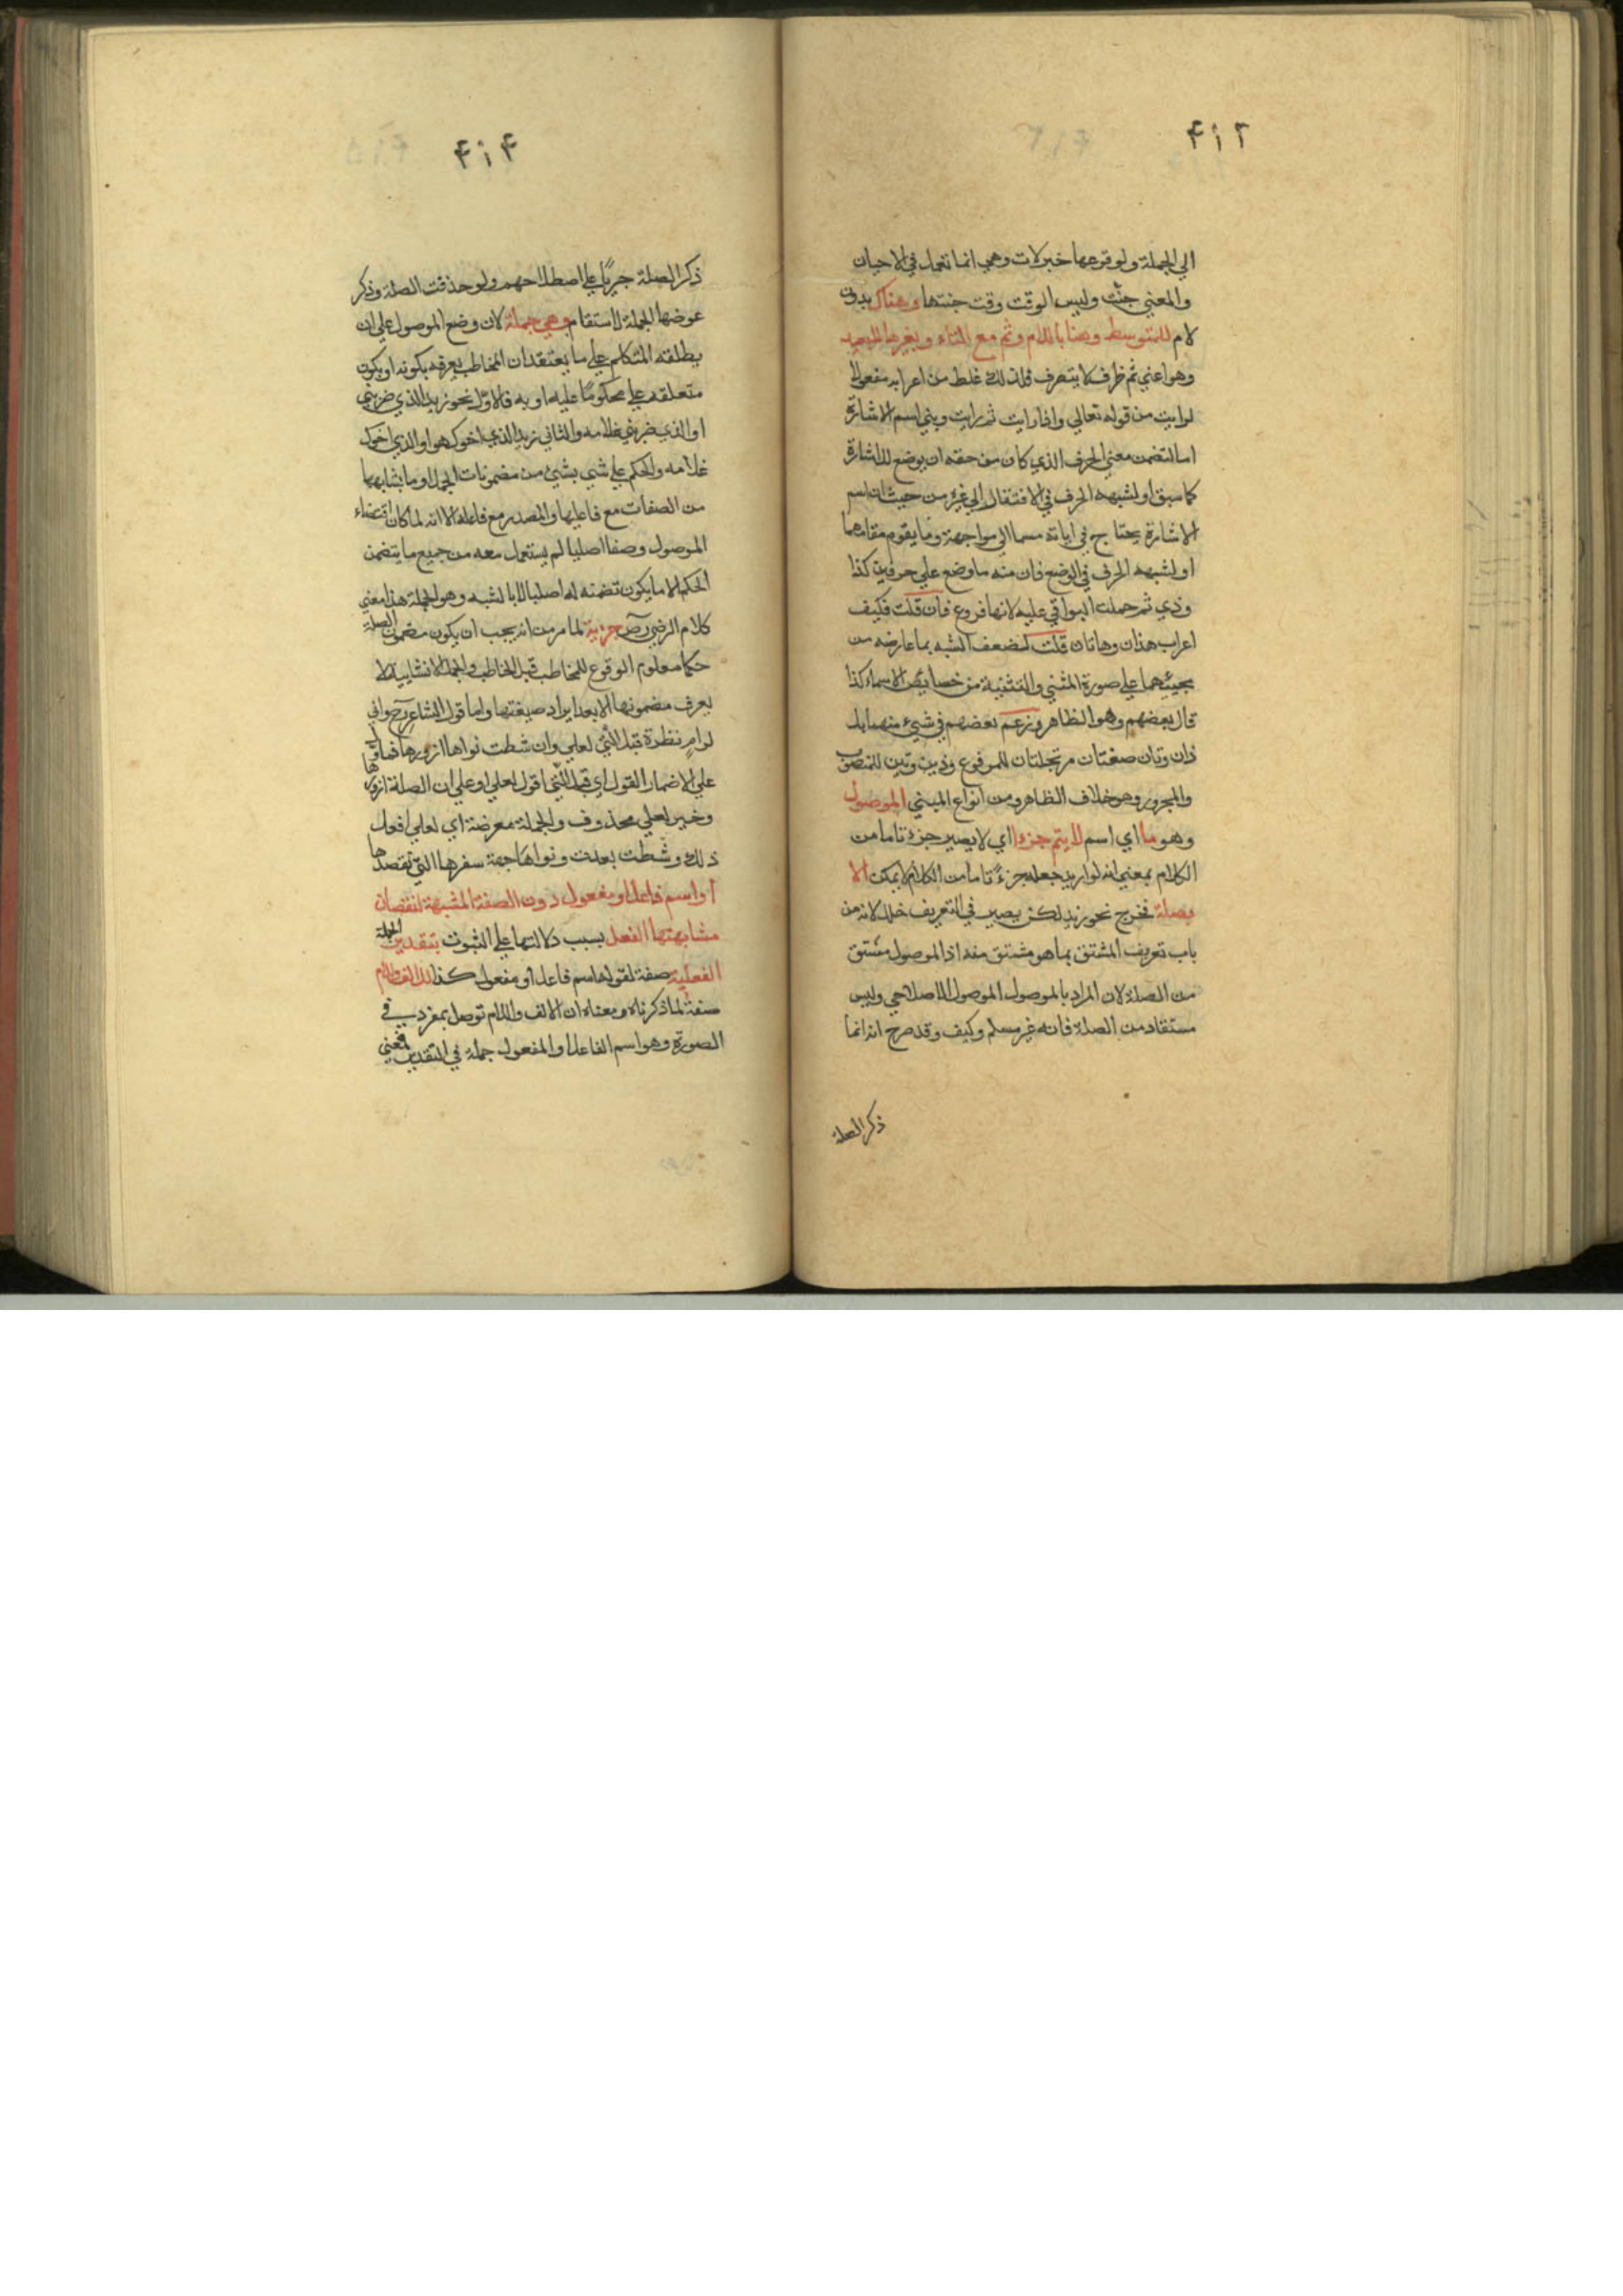 ۴۱۳
الي الجملة ولوقوعها خبر لات وهي انما تعمل في الاحيان
والمعني جنت وليس الوقت وقت جنتها وهناك بدون
لام للمتوسط وهنا باللام وثم مع التاء وبغيرها للبعيد
وهو اعني ثم ظرف لا يتصرف فلذلك غلط من اعرابه مفعولا
لرايت من قوله تعالي واذا رايت ثم رايت وبني اسم الاشارة
اما لتضمن معني الحرف الذي كان من حقه ان يوضع للاشارة
كما سبق او لشبهه الحرف في الافتقار الي غيره من حيث ان اسم
الاشارة يحتاج في ابانة مسماه الي مواجهة وما يقوم مقامها
او لشبهه الحرف في الوضع فان منه ما وضع علي حرفين كذا
وذي ثم حملت البواقي عليه لانها فروع فان قلت فكيف
اعراب هذان وهاتان قلت لضعف الشبه بما عارضه من
مجيئهما علي صورة المثني والتثنية من خصايص الاسماء كذا
قال بعضهم وهو الظاهر وزعم بعضهم في شيء منها بل
ذان وتان صيغتان مرتجلتان للمرفوع وذين وتين للمنصوب
والمجرور وهو خلاف الظاهر ومن انواع المبني الموصول
وهو ما اي اسم لا يتم جزءا اي لا يصير جزء تاما من
الكلام بمعني انه لو اريد جعله جزءً تاما من الكلام لا يمكن الا
بصلة فخرج نحو زيد لكن يصير في التعريف خلل لانه من
باب تعريف المشتق بما هو مشتق منه اذ الموصول مشتق
من الصلة لان المراد بالموصول الموصول الاصطلاحي وليس
مستفاد من الصلة فانه غير مسلم وكيف وقد صرح انه انما
ذكر الصلة
۴۱۴
ذكر الصلة جريًا علي اصطلاحهم ولو حذفت الصلة وذكر
عوضها الجملة لاستقام وهي جملة لان وضع الموصول علي ان
يطلقه المتكلم علي ما يعتقد ان المخاطب يعرفه بكونه او بكون
متعلقه علي محكومًا عليه او به فالاوّل نحو زيد الذي ضربني
او الذي ضربني غلامه والثاني زيد الذي اخوك هو او الذي اخوك
غلامه والحكم علي شي بشيئ من مضمونات الجمل او ما يشابهها
من الصفات مع فاعليها والمصدر مع فاعله الا انه لما كان اقتضاء
الموصول وصفا اصليا لم يستعمل معه من جميع ما يتضمن
الحكم الا ما يكون تضمنه له اصليا لا بالشبه وهو الجملة هذا معني
كلام الرضي رح خبرية لما مر من انه يجب ان يكون مضمون الصلة
حكما معلوم الوقوع للمخاطب قبل الخاطب والجملة الانشايية لا
يعرف مضمونها الا بعد ايراد صيغتها واما قول الشاعر رح واني
لرامٍ نظرة قبل التي لعلي وان شطت نواها ازورها فمأول
علي الاضمار القول اي قبل التي اقول لعلي او علي ان الصلة ازورها
وخبر لعلي محذوف والجملة معرضة اي لعلي افعل
ذلك وشطت بعدت ونواها جهة سفرها التي تقصدها
او اسم فاعل او مفعول دون الصفة المشبهة لنقصان
مشابهتها الفعل بسبب دلالتها علي الثبوت بتقدير الجملة
الفعلية صفة لقوله اسم فاعل او مفعول كذا للالف واللام
صفة لما ذكرناه ومعناه ان الالف واللام توصل بمفرد في
الصورة وهو اسم الفاعل او المفعول جملة في التقدير فمعني